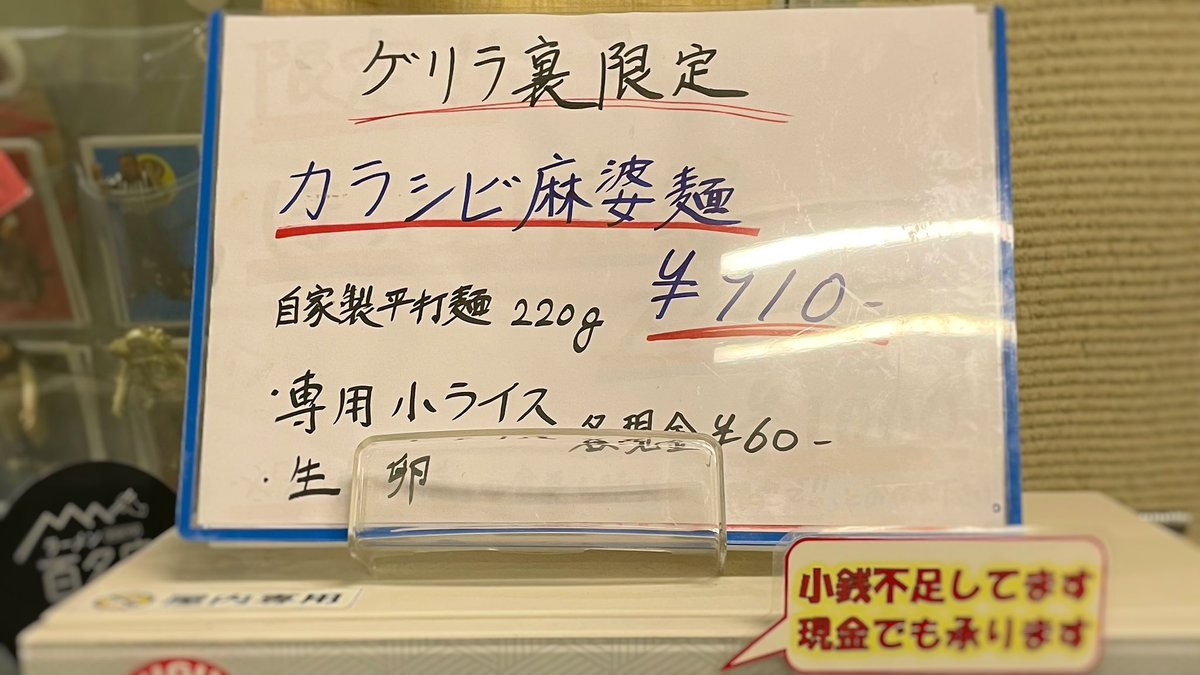 ゲリラ裏限定
カラシビ麻婆麺
自家製平打麺 220g ¥910-
・専用小ライス
各現金¥60-
・生 卵
屋内専用
小銭不足してます
現金でも承ります